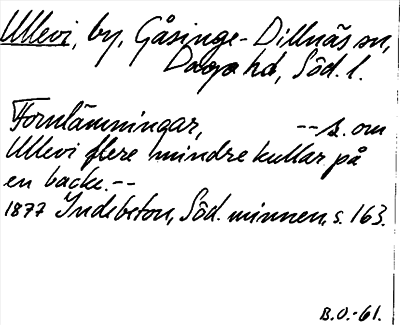 Ullevi, by, Gåsinge-Dillnäs sn,
Daga hd, Söd. l.
Fornlämningar, -- s. om
Ullevi flere mindre kullar på
en backe. --
1877 Indebetou, Söd. minnen, s. 163.
B.O.-61.